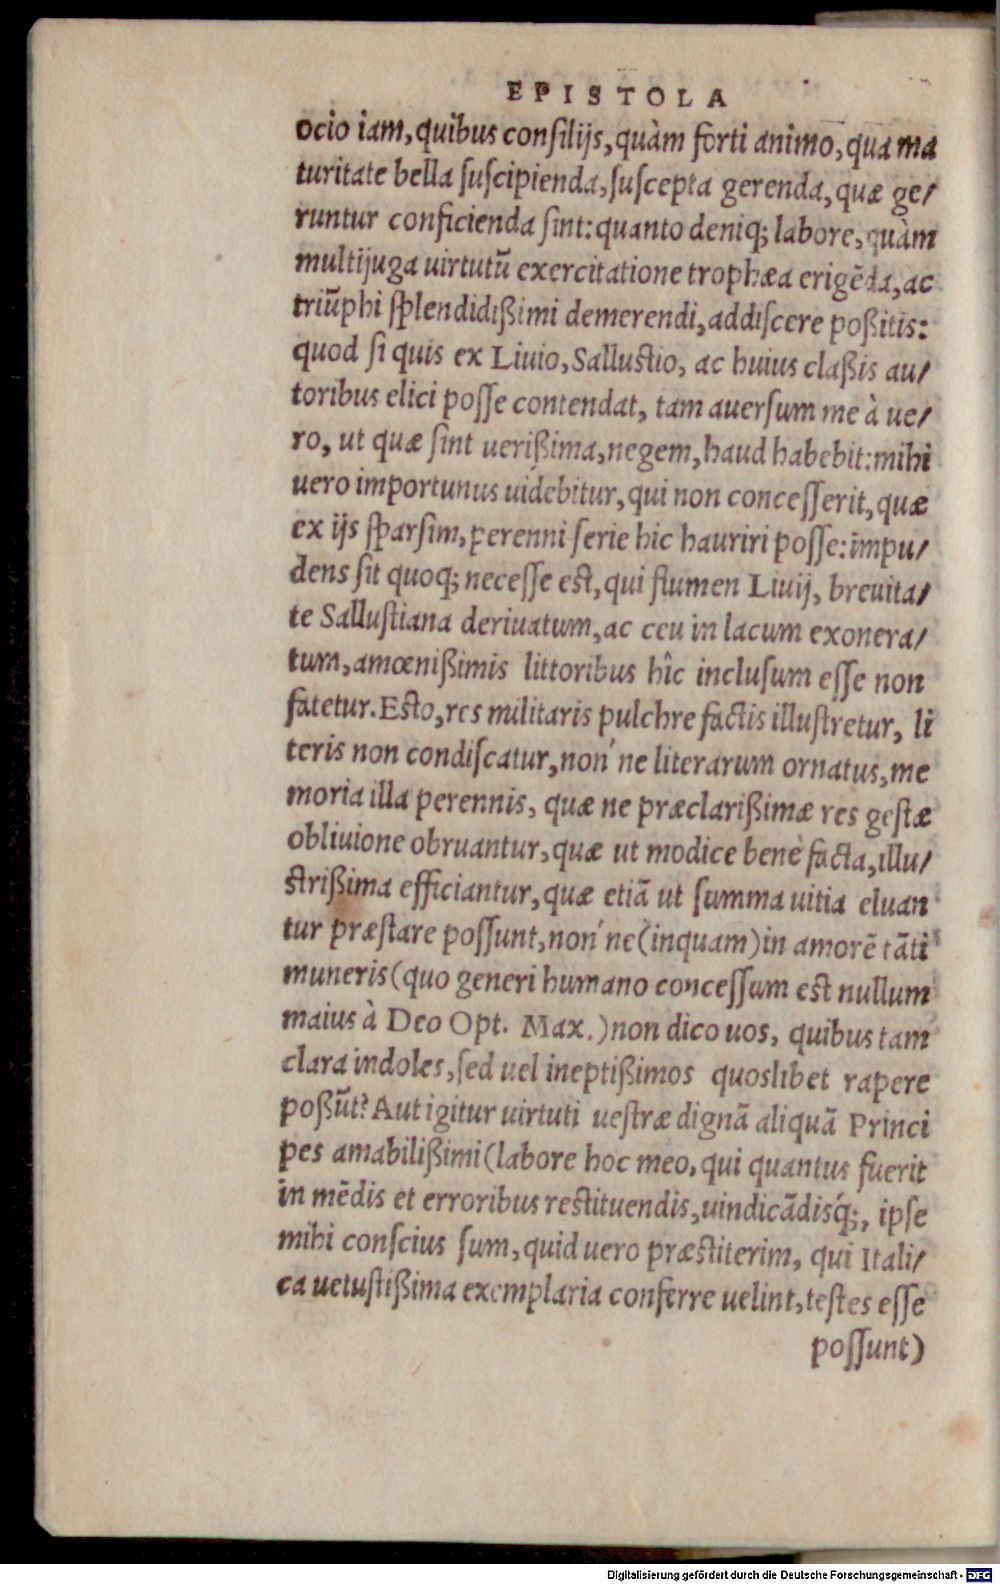 EPISTOLA
ocio iam, quibus consilijs, quàm forti animo, qua ma
turitate bella suscipienda, suscepta gerenda, quæ ge/
runtur conficienda sint: quanto deniq; labore, quàm
multijuga uirtutū exercitatione trophæa erigēda, ac
triūphi splendidißimi demerendi, addiscere poßitis:
quod si quis ex Liuio, Sallustio, ac huius claßis au/
toribus elici posse contendat, tam auersum me à ue/
ro, ut quæ sint uerißima, negem, haud habebit: mihi
uero importunus uidebitur, qui non concesserit, quæ
ex ijs sparsim, perenni serie hic hauriri posse: impu/
dens sit quoq; necesse est, qui flumen Liuij, breuita/
te Sallustiana deriuatum, ac ceu in lacum exonera/
tum, amœnißimis littoribus hîc inclusum esse non
fatetur. Esto, res militaris pulchre factis illustretur, li
teris non condiscatur, non´ne literarum ornatus, me
moria illa perennis, quæ ne præclarißimæ res gestæ
obliuione obruantur, quæ ut modice benè facta, illu/
strißima efficiantur, quæ etiā ut summa uitia eluan
tur præstare possunt, non´ne (inquam) in amorē tāti
muneris (quo generi humano concessum est nullum
maius à Deo Opt. Max.) non dico uos, quibus tam
clara indoles, sed uel ineptißimos quoslibet rapere
poßūt? Aut igitur uirtuti uestræ dignā aliquā Princi
pes amabilißimi (labore hoc meo, qui quantus fuerit
in mēdis et erroribus restituendis, uindicādisq́;, ipse
mihi conscius sum, quid uero præstiterim, qui Itali/
ca uetustißima exemplaria conferre uelint, testes esse
possunt)
Digitalisierung gefördert durch die Deutsche Forschungsgemeinschaft - DFG